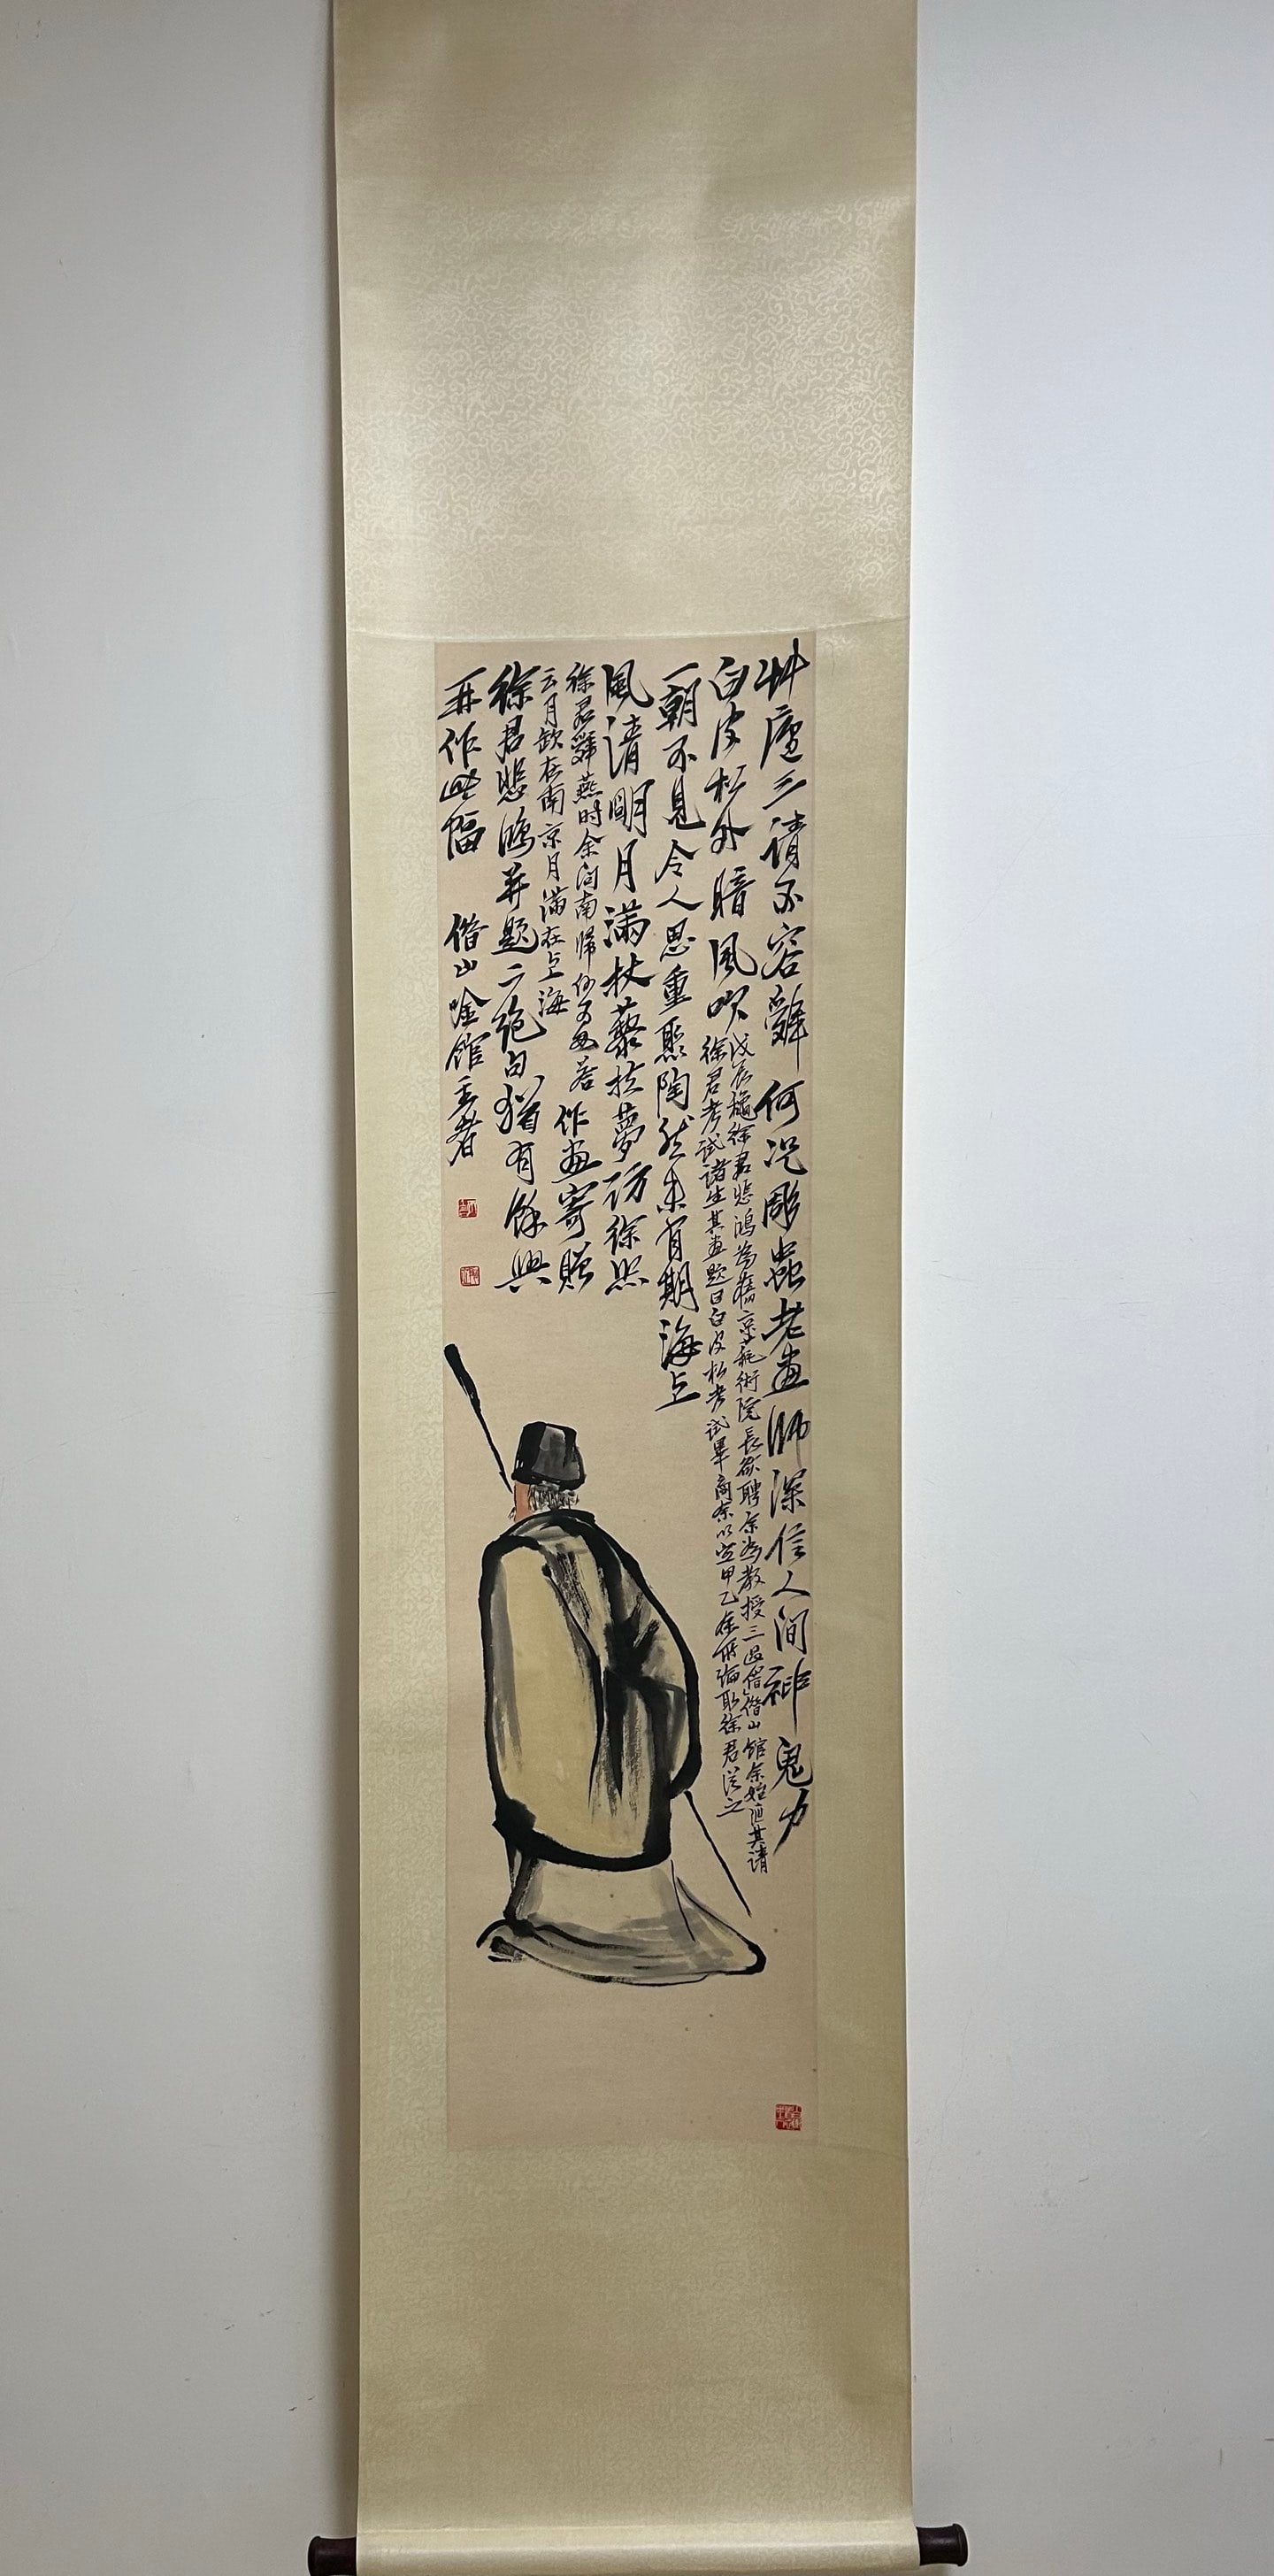 艸廬三請不容辭何況雕蟲老畫師深信人間神鬼力
白皮松外暗風吹
戊辰秋徐君悲鴻為舊京藝術院長欲聘余為教授三過借山館余始應其請
徐君考試諸生其畫題曰白皮松考試畢商余以定甲乙余所論取徐君從之
一朝不見令人思重聚陶然未有期海上
風清明月滿杖藜扶夢訪徐熙
徐君辭燕時余問南歸何所答
云月缺在南京月滿在上海
作畫寄贈
徐君悲鴻并題二絕句猶有餘興
再作此幅 借山吟館主者